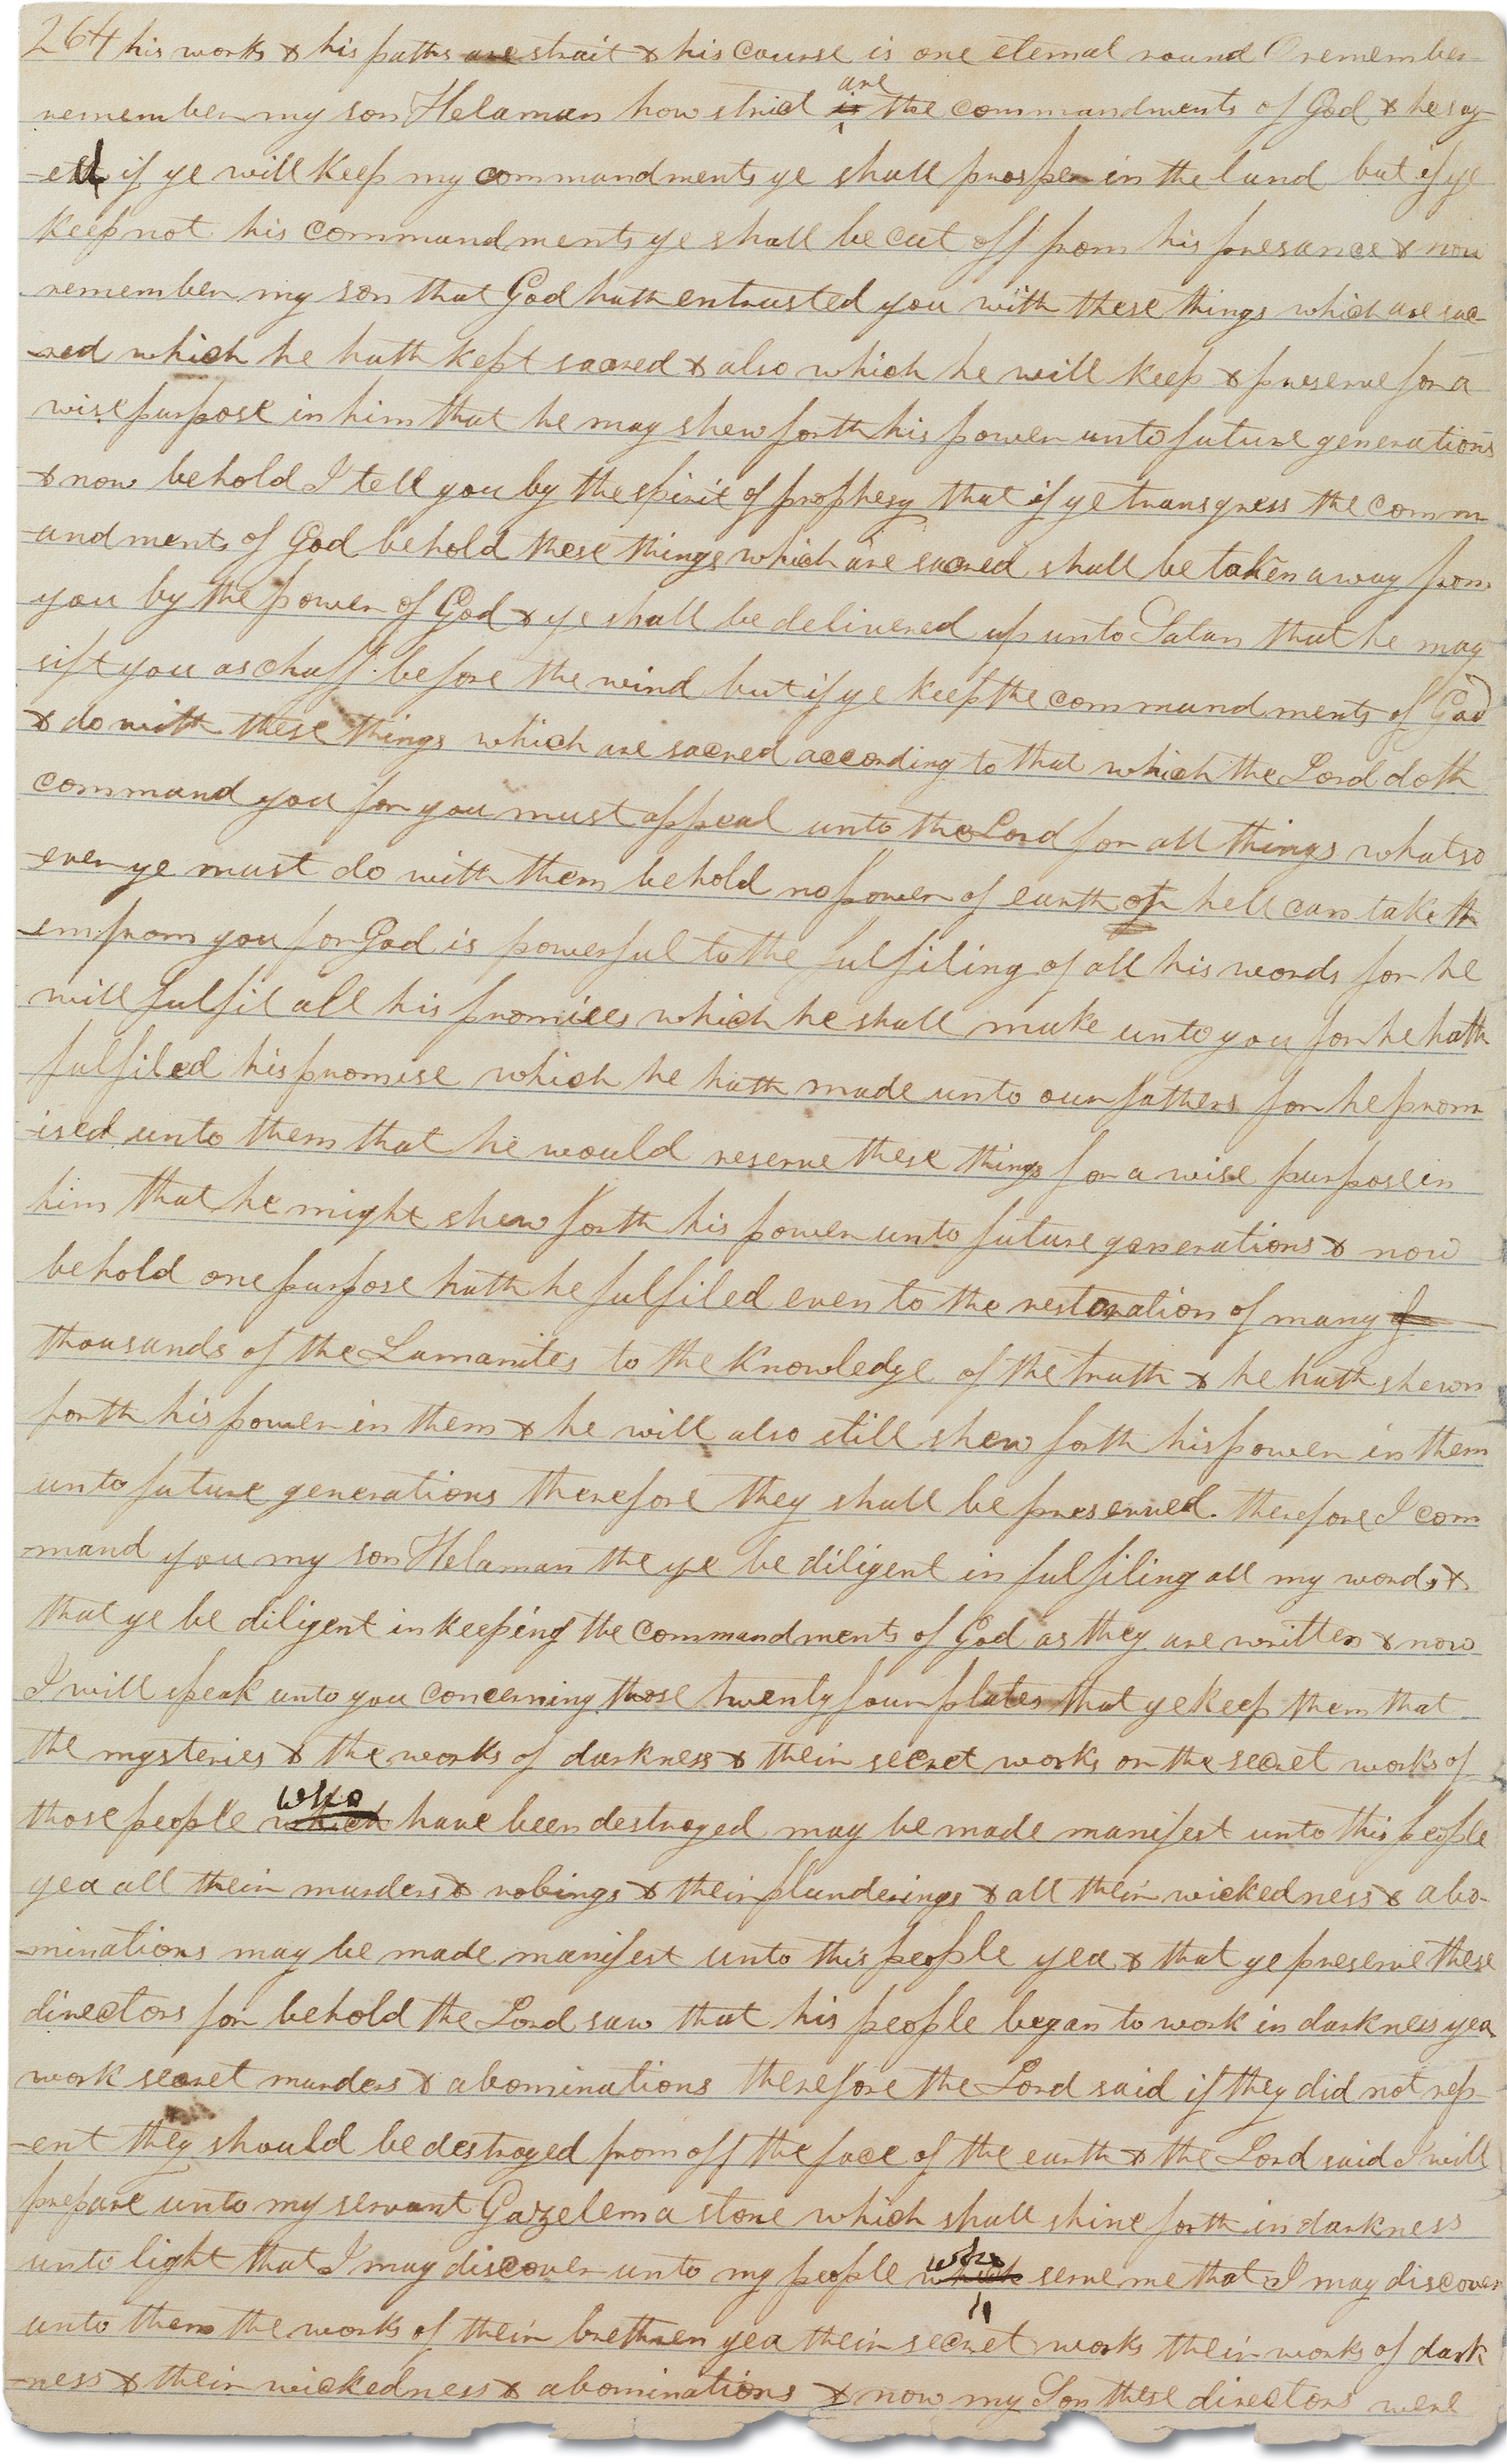 264 his works & his paths are strait & his course is one eternal round O remember
remember my son Helaman how strict is are the commandments of God & he say
-eth if ye will keep my commandments ye shall prosper in the land but if ye
keep not his commandments ye shall be cut off from his presance & now
remember my son that God hath entrusted you with these things which are sac-
-red which he hath kept sacred & also which he will keep & preserve for a
wise purpose in him that he may shew forth his power unto future generations
& now behold I tell you by the spirit of prophesy that if ye transgress the comm
-andments of God behold these things which are sacred shall be taken away from
you by the power of God & ye shall be delivered up unto Satan that he may
sift you as chaff before the wind but if ye keep the commandments of God
& do with these things which are sacred according to that which the Lord doth
command you for you must appeal unto the Lord for all things whatso
-ever ye must do with them behold no power of earth or hell can take th
-em from you for God is powerful to the fulfiling of all his words for he
will fulfil all his promises which he shall make unto you for he hath
fulfiled his promise which he hath made unto our fathers for he prom
-ised unto them that he would reserve these things for a wise purpose in
him that he might shew forth his power unto future generations & now
behold one purpose hath he fulfiled even to the restoration of many
thousands of the Lamanites to the knowledge of the truth & he hath shewn
forth his power in them & he will also still shew forth his power in them
unto future generations therefore they shall be preserved. therefore I com
-mand you my son Helaman the ye be diligent in fulfiling all my words &
that ye be diligent in keeping the commandments of God as they are written & now
I will speak unto you concerning those twenty four plates that ye keep them that
the mysteries & the works of darkness & their secret works or the secret works of
those people which who have been destroyed may be made manifest unto this people
yea all their murders & robings & their plunderings & all their wickedness & abo-
-minations may be made manifest unto this people yea & that ye preserve these
directors for behold the Lord saw that his people began to work in darkness yea
work secret murders & abominations therefore the Lord said if they did not rep-
-ent they should be destroyed from off the face of the earth & the Lord said I will
prepare unto my servant Gazelem a stone which shall shine forth in darkness
unto light that I may discover unto my people which who serve me that I may discover
unto them the works of their brethren yea their secret works their works of dark
-ness & their wickedness & abominations & now my Son these directors were